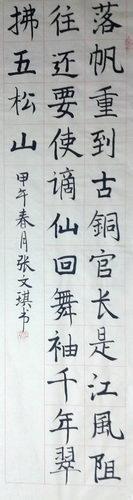 落帆重到古銅官长是江風阻
往还要使谪仙回舞袖千年翠
拂五松山
甲午春月张文琪书